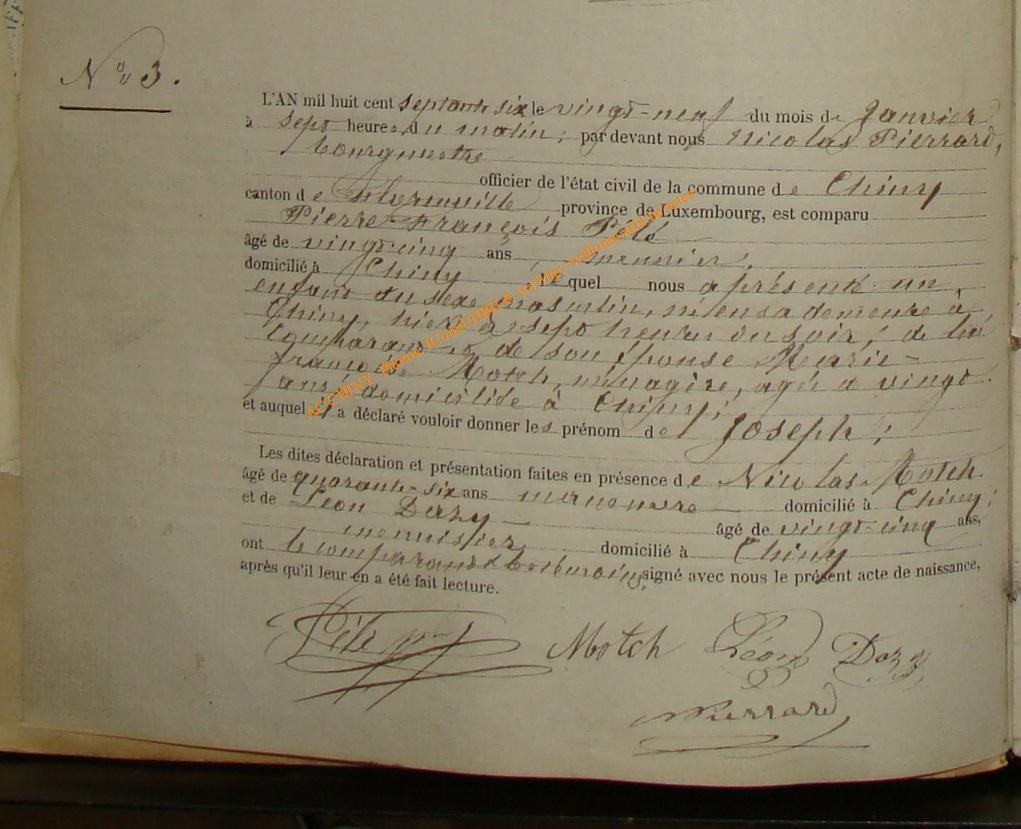 N° 3.
L'AN mil huit cent septante six le vingt-neuf du mois de Janvier
à sept heures du matin; par devant nous Nicolas Pierrard,
bourgmestre
officier de l'état civil de la commune de Chiny
canton de Florenville province de Luxembourg, est comparu
Pierre François Pété
âgé de vingt-cinq ans, meunier,
domicilié à Chiny lequel nous a présenté un
enfant du sexe masculin, né en sa demeure à
Chiny, hier à sept heures du soir, de lui
comparant et de son épouse Marie-
Motch, ménagère, agée d vingt
ans domiciliée à Chiny;
et auquel il a déclaré vouloir donner les prénom de Joseph;
Les dites déclaration et présentation faites en présence de Nicolas Motch
âgé de quarante-six ans domicilié à Chiny;
et de Léon Dazy âgé de vingt-cinq ans,
menuisier domicilié à Chiny
ont le comparant et les témoins, signé avec nous le présent acte de naissance,
après qu'il leur en a été fait lecture.
Motch Léon Dazy
Pierrard